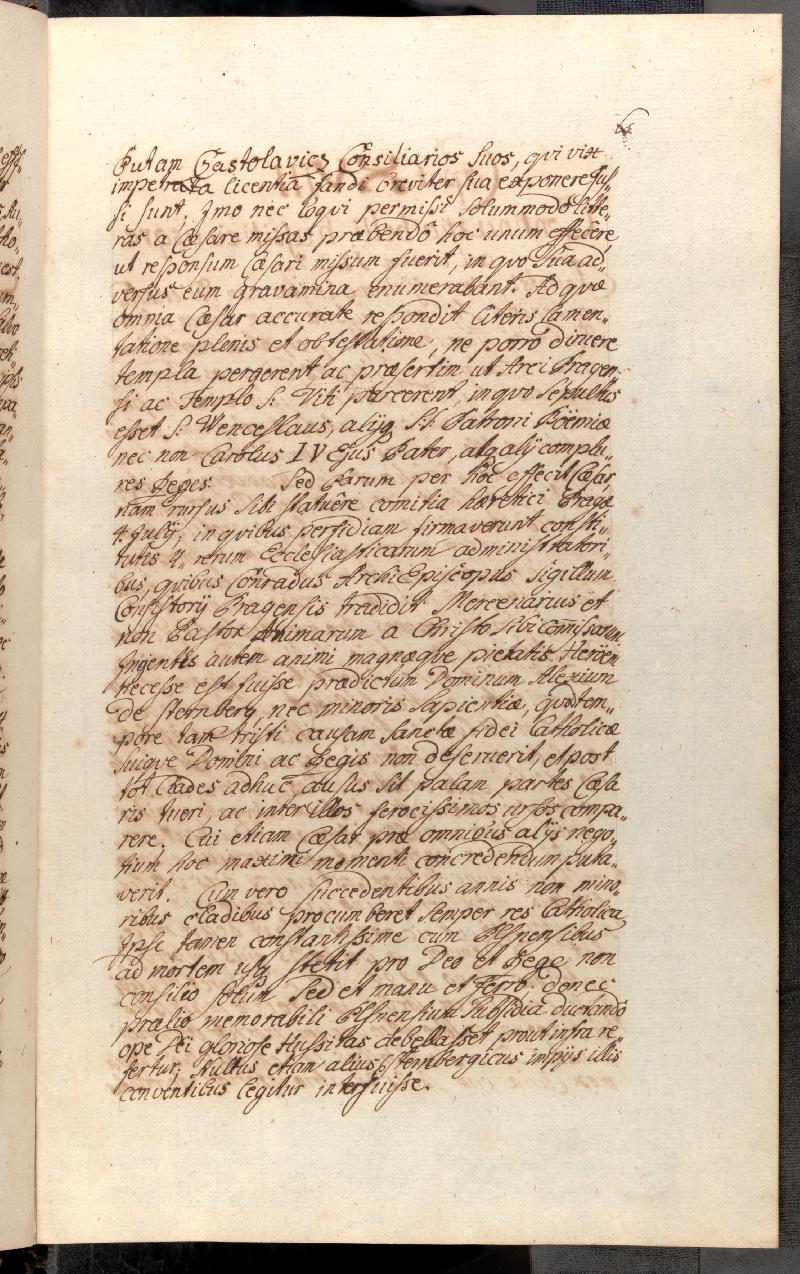 Putam Czastolavicz Consiliarios suos, qui vix
imperata licentiâ fandi breviter sua exponere jus„
si sunt, Jmo nec loqvi permissi solummodò litte„
ras a Cæsare missas præbendô hoc unum effecêre
ut responsum Cæsari missum fuerit, in qvo sua ad„
versus eum gravamina enumerabant. Ad qvæ
omnia Cæsar accurate respondit literis lamen„
tatione plenis et obtestatione, ne porrò diruere
templa pergerent ac præsertim ut Arci Pragen„
si ac Templo S. Viti parcerent, in qvo sepultus
esset S. Wenceslaus, alijq, S.S. Patroni Boëmiæ
nec non Carolus IV Ejus Pater, atq alij complu„
res Reges. Sed Parum per hoc effecit Cæsar
nam rursus sibi statuêre comitia hæretici Pragæ
4. Julij, in qvibus perfidiam firmaverunt consti„
tutis 4. rerum Ecclesiasticarum administratori„
bus, qvibus Conradus ArchiEpiscopus sigillum
Consistorij Pragensis tradidit Mercenarius et
non Pastor Animarum a Christo sibi comissarum
Jngentis autem animi magnæqve pietatis Heröem
necesse est fuisse prædictum Dominum Alexium
De Sternberg, nec minoris sapientiæ, qvòd tem„
pore tam tristi causam sanctæ fidei Catholicæ
suiqve Domini ac Regis non deseruerit, et post
tot Clades adhuc, ausus sit palan partes Cæsa
ris tueri, ac inter illos ferocissimos ursos compa„
rere. Cui etiam Cæsar præ omnibus alijs nego„
tium hoc maximi momenti concredendum puta„
verit. Cum vero succedentibus annis non mino„
ribus cladibus procumberet semper res Catholica,
Ipse tamen constantissime cum Plsnensibus
ad mortem usq stetit pro Deo et Rege non
consilio solùm sed et manu et Ferro: donec
prælio memorabili Plsnensium subsidia ductandô
ope Dei gloriose Hussitas debellasset prout infra re„
fertur; Nullus etiam alius Sternbergicus impijs illis
conventibus legitur interfuisse.